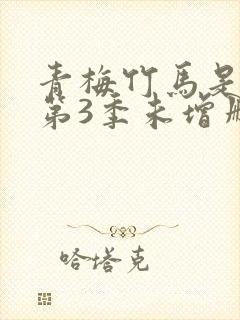 青梅竹馬是
第3季未增刪
哈塔克